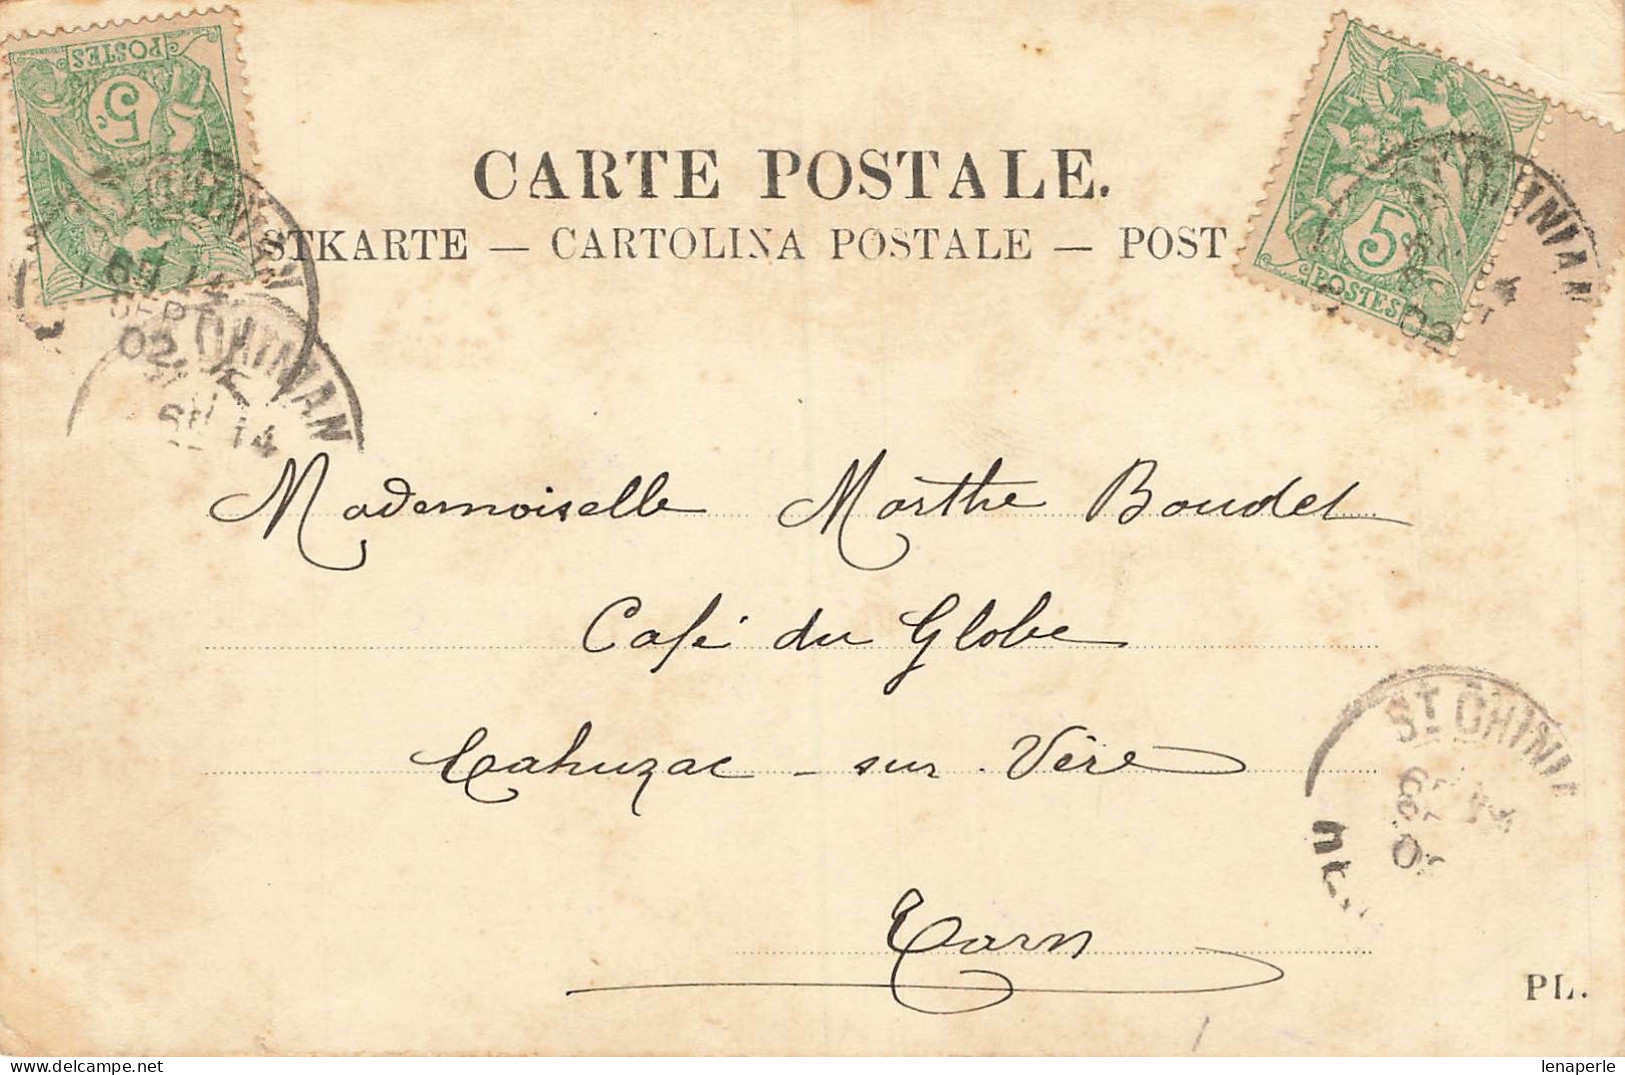 POSTES
5c
CARTE POSTALE.
STKARTE — CARTOLINA POSTALE — POST
5c
POSTES
CHINIAN
SEPT
02
CHINIAN
14
CHINIAN
02
Mademoiselle Marthe Boudet
Café du Globe
Cahuzac - sur - Vère
Tarn
ST CHINI
PL.
lenaperle